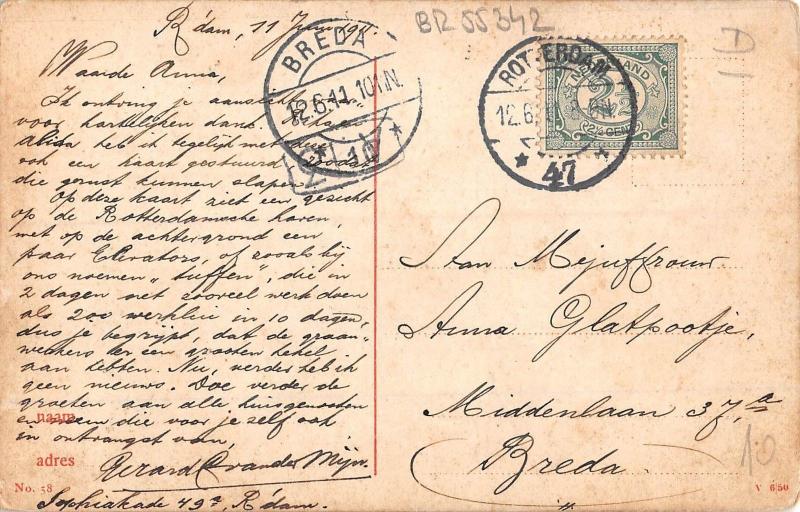 R'dam, 11 Juni 1911.
Waarde Anna,
Ik ontving je aansicht
voor hartelijken dank. Aan
alida heb ik tegelijk met deze
ook een kaart gestuurd, zoodat
die gerust kunnen slapen.
Op deze kaart ziet een gezicht
op de Rotterdamsche haven,
met op de achtergrond een
paar Elevators, of zooals bij
ons noemen "tuffen", die in
2 dagen net zooveel werk doen
als 200 werklui in 10 dagen,
dus je begrijpt, dat de graan-
werkers hier een grooten hekel
aan hebben. Nu, verder heb ik
geen nieuws. Doe verder de
groeten aan alle huisgenooten
en die voor je zelf ook
in ontvangst van,
Gerard C. van der Mijn.
Sophiakade 49a, R'dam.
naam
adres
No. 58
BR 55342
D
BREDA
12.6.11.10V.N.
ROTTERDAM
12.6
47
NEDERLAND
2½
(2½ CENT)
Aan Mejuffrouw
Anna Glatpootje,
Middenlaan 37,a
Breda
10
V 650